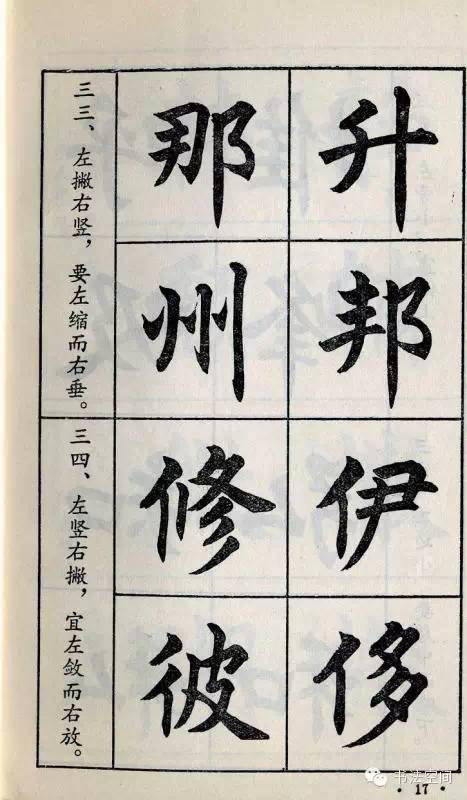 升邦伊侈
那州修彼
三三、左撇右竖，要左缩而右垂。
三四、左竖右撇，宜左敛而右放。
· 17 ·
书法空间